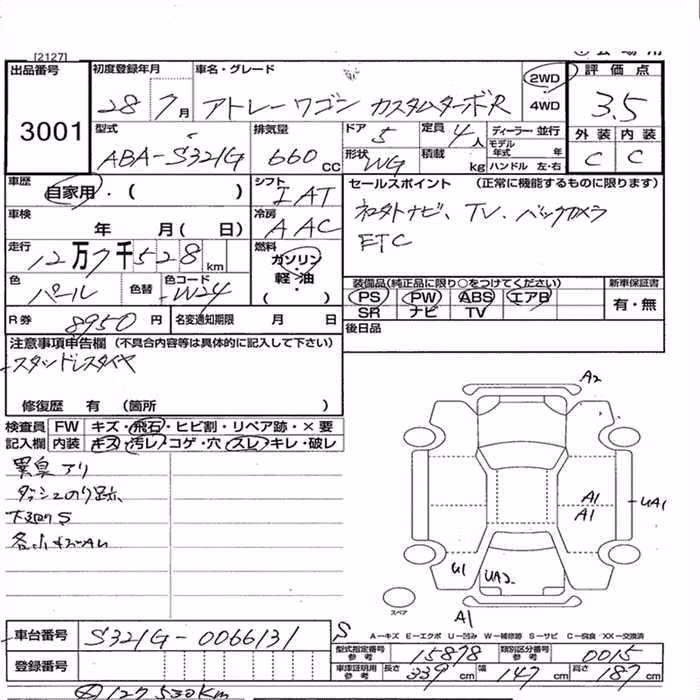 [2127]
出品番号
3001
初度登録年月
28 7月
車名・グレード
アトレーワゴン カスタムターボR
2WD
4WD
評価点
3.5
外装 内装
C C
型式
ABA-S321G
排気量
660 CC
ドア
5
定員
4人
形状
WG
積載
kg
ディーラー・並行
モデル年式 年
ハンドル 左・右
車歴
自家用・( )
シフト
IAT
セールスポイント (正常に機能するものに限ります)
ナビ、TV、バックカメラ
ETC
車検
年 月( 日)
冷房
AAC
走行
12万7千528km
燃料
ガソリン・
軽・油
( )
色
パール
色替
色コード
W24
装備品(純正品に限り○をつけてください)
PS PW ABS エアB
SR ナビ TV
新車保証書
有・無
R券 8950円
名変通知期限 月 日
後日品
注意事項申告欄 (不具合内容等は具体的に記入して下さい)
スタッドレスタイヤ
修復歴 有 (箇所 )
検査員
記入欄
FW キズ・飛石・ヒビ割・リペア跡・×要
内装 キズ・汚レ・コゲ・穴・スレ・キレ・破レ
異臭アリ
ダッシュのり跡
下廻りS
A2
A1
A1
UA1
U1
UA2
A1
スペア
S
A-キズ E-エクボ U-凹み W-補修跡 S-サビ C-腐食 XX-交換済
車台番号
S321G-0066131
型式指定番号
参考
15878
類別区分番号
参考
0015
登録番号
車庫証明用
参考
長さ 339cm
幅 147cm
高さ 187cm
127530KM